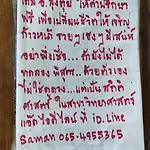 โดย อ.สุงทุ่ม ให้คำปรึกษา
ฟรี เพื่อเปลี่ยนช้าๆ ให้เจริญ
ก้าวหน้า รวยๆ เฮงๆ มีเสน่ห์
อย่าพึ่งเชื่อ... ถ้ายังไม่ได้
ทดลอง พิสูจ... ด้วยตัวเอง
ไม่ใช่ดูดวง... แต่เป็นสถิติ
ศาสตร์ ในสมาวิทยาศาสตร์
แอดไลน์ได้ที่ ip.Line
Saman 065-4955365